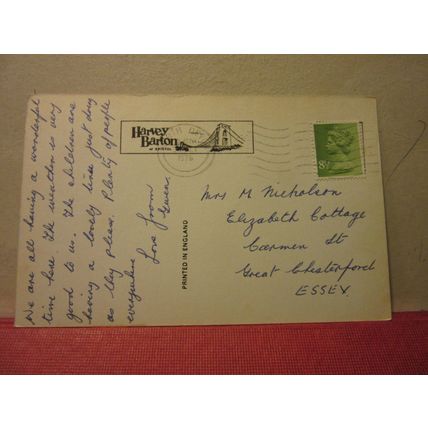 We are all having a wonderful
time here the weather is very
good to us. The children are
having a lovely time just doing
as they please. Plenty of people
everywhere Love from
Gwen.
Harvey
Barton
of BRISTOL
1976
PRINTED IN ENGLAND
8½P
Mrs M Nicholson
Elizabeth Cottage
Carmen St
Great Chesterford
ESSEX